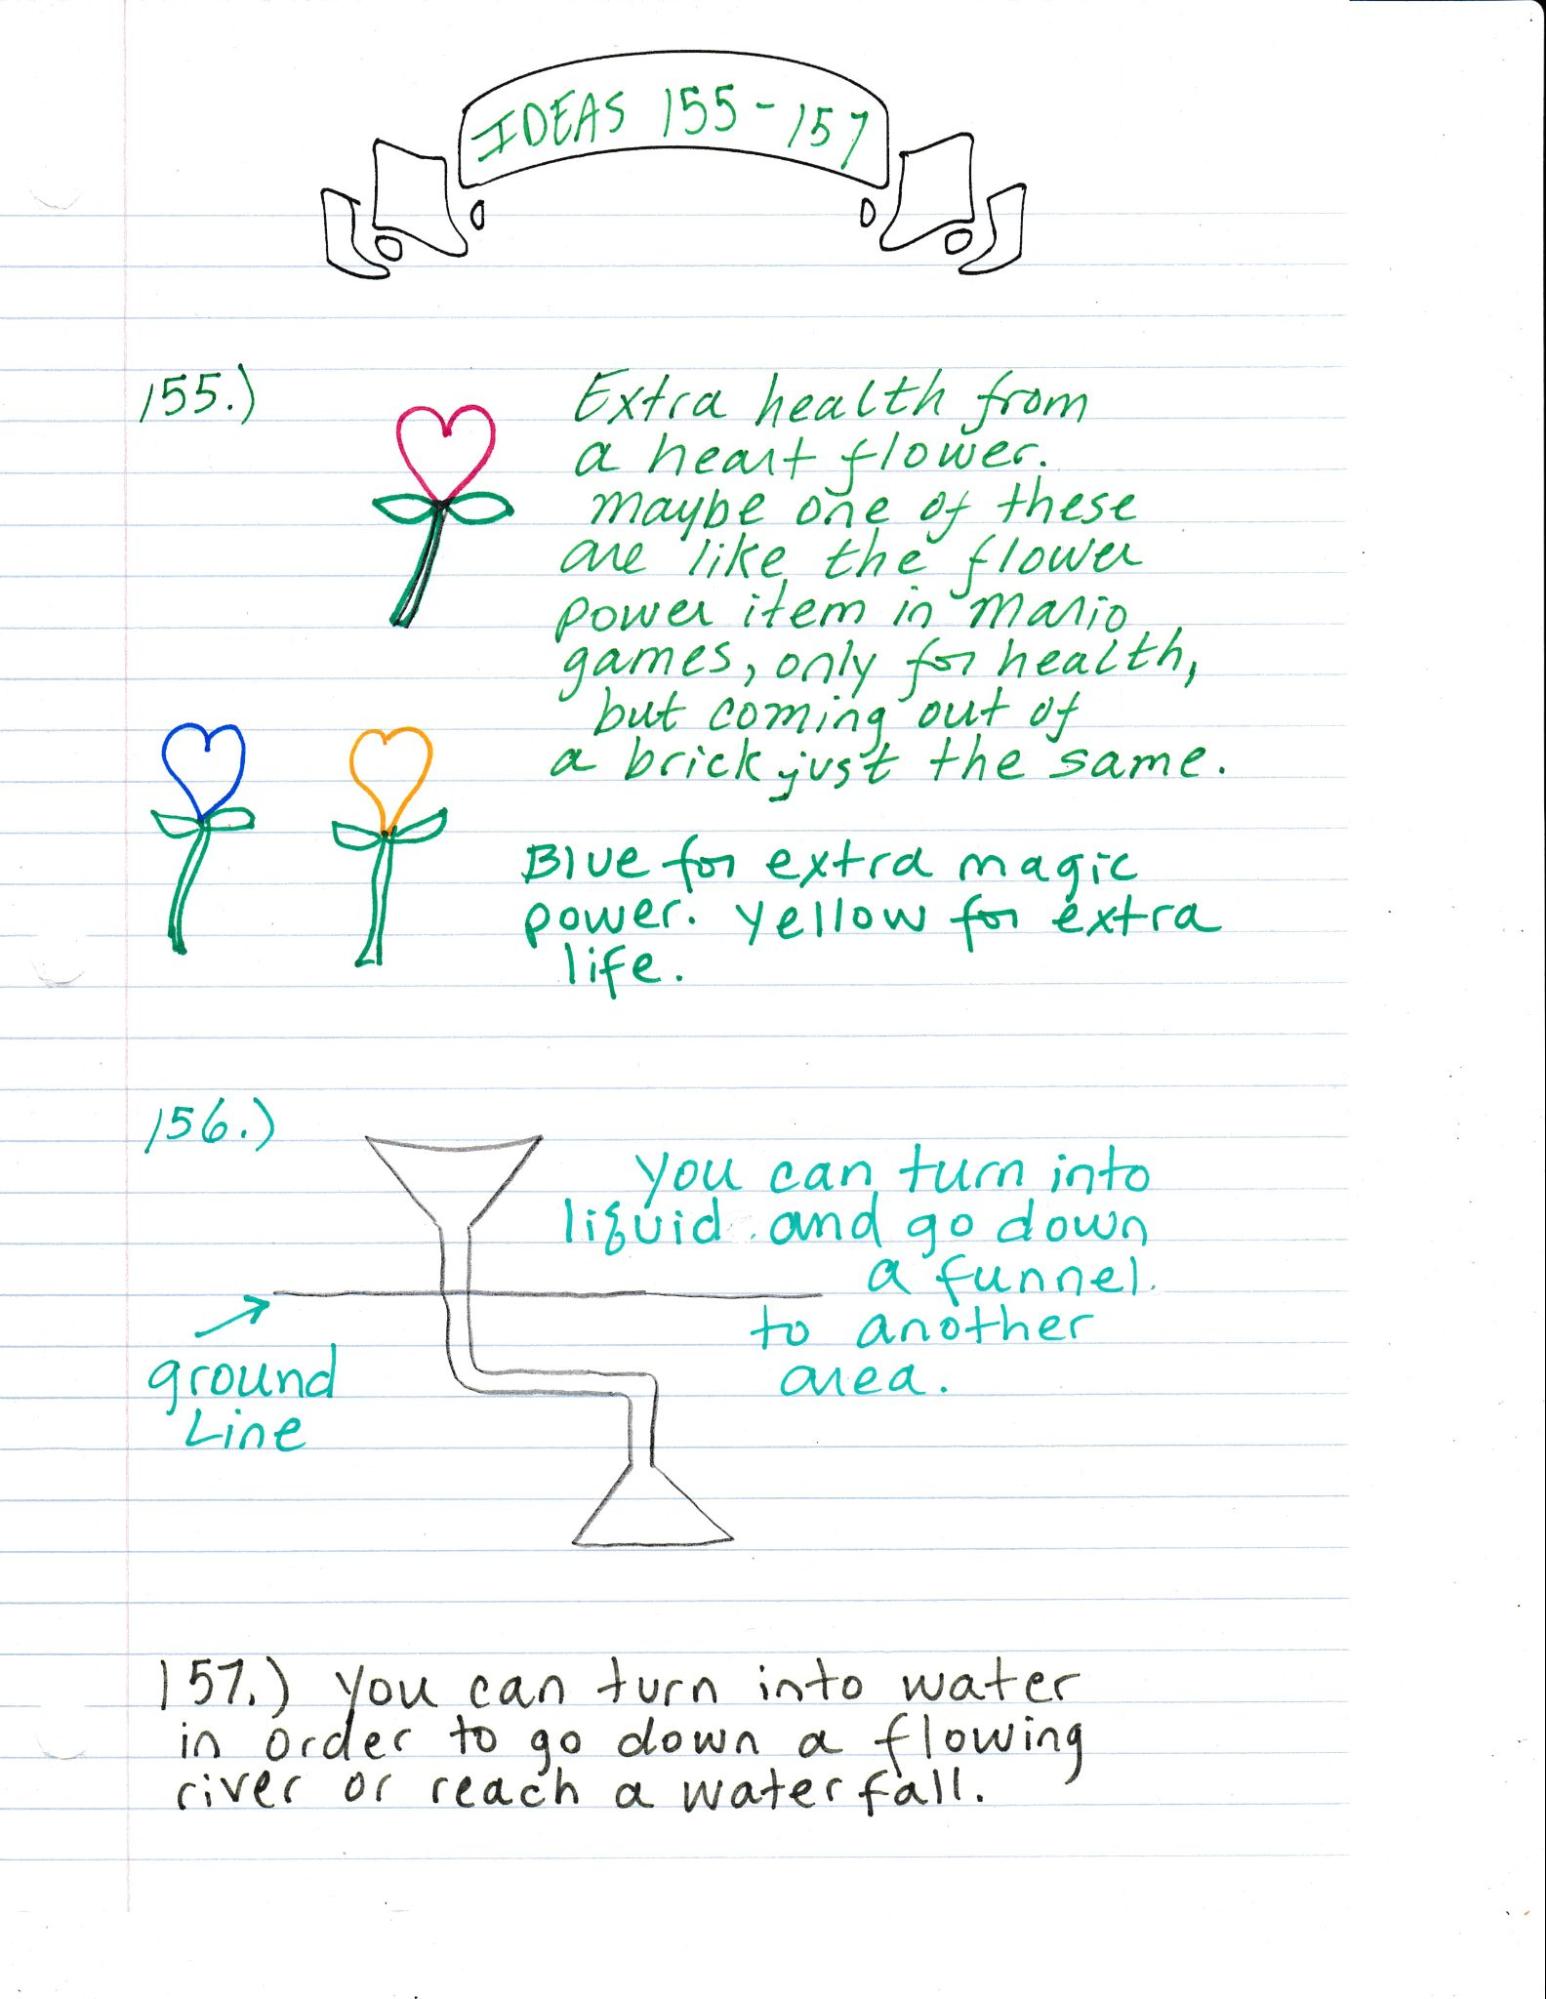 IDEAS 155-157
155.)
Extra health from
a heart flower.
maybe one of these
are like the flower
power item in Mario
games, only for health,
but coming out of
a brick just the same.
Blue for extra magic
power. Yellow for extra
life.
156.)
you can turn into
liquid and go down
a funnel.
to another
area.
ground
Line
157.) you can turn into water
in order to go down a flowing
river or reach a waterfall.